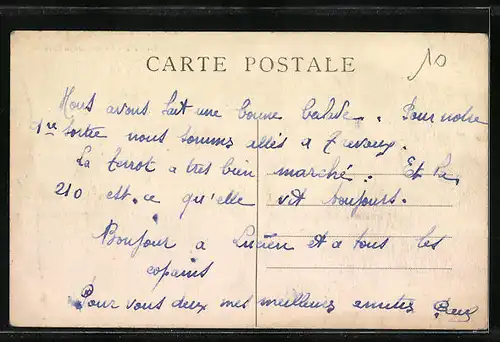 10
CARTE POSTALE
Nous avons fait une bonne balade. Pour notre
1re sortie nous sommes allés à Trevoux.
La Terrot a tres bien marché. Et la
210 est-ce qu'elle vit toujours.
Bonjour a Lucien et a tous les
copains
Pour vous deux mes meilleurs amities